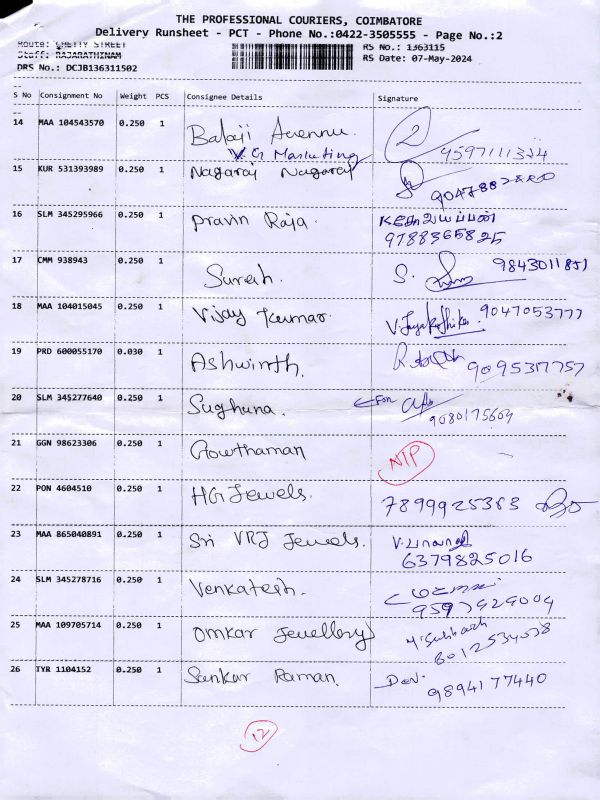 THE PROFESSIONAL COURIERS, COIMBATORE
Delivery Runsheet - PCT - Phone No.:0422-3505555 - Page No.:2
Route: CHETTY STREET
RS No.: 1363115
Staff: RAJARATHINAM
RS Date: 07-May-2024
DRS No.: DCJB136311502
S No Consignment No Weight PCS Consignee Details Signature
14 MAA 104543570 0.250 1 Balaji Avennu. 2
Marketing
15 KUR 531393989 0.250 1 Nagaraj Nagaraj
16 SLM 345295966 0.250 1 Pravin Raja.
9788365825
17 CMM 938943 0.250 1 Suresh. S. 9843011851
18 MAA 104015045 0.250 1 Vijay Kumar. 9047053777
19 PRD 600055170 0.030 1 Ashwinth.
20 SLM 345277640 0.250 1 Sughuna. For
9080175604
21 GGN 98623306 0.250 1 Gowthaman NTP
22 PON 4604510 0.250 1 HG Jewels. 7899925363
23 MAA 865040891 0.250 1 Sri VRJ Jewels.
6379825016
24 SLM 345278716 0.250 1 Venkatesh.
25 MAA 109705714 0.250 1 Omkar Jewellery M. Subhash
26 TYR 1104152 0.250 1 Sankar Raman. Dev.
9894177440
12